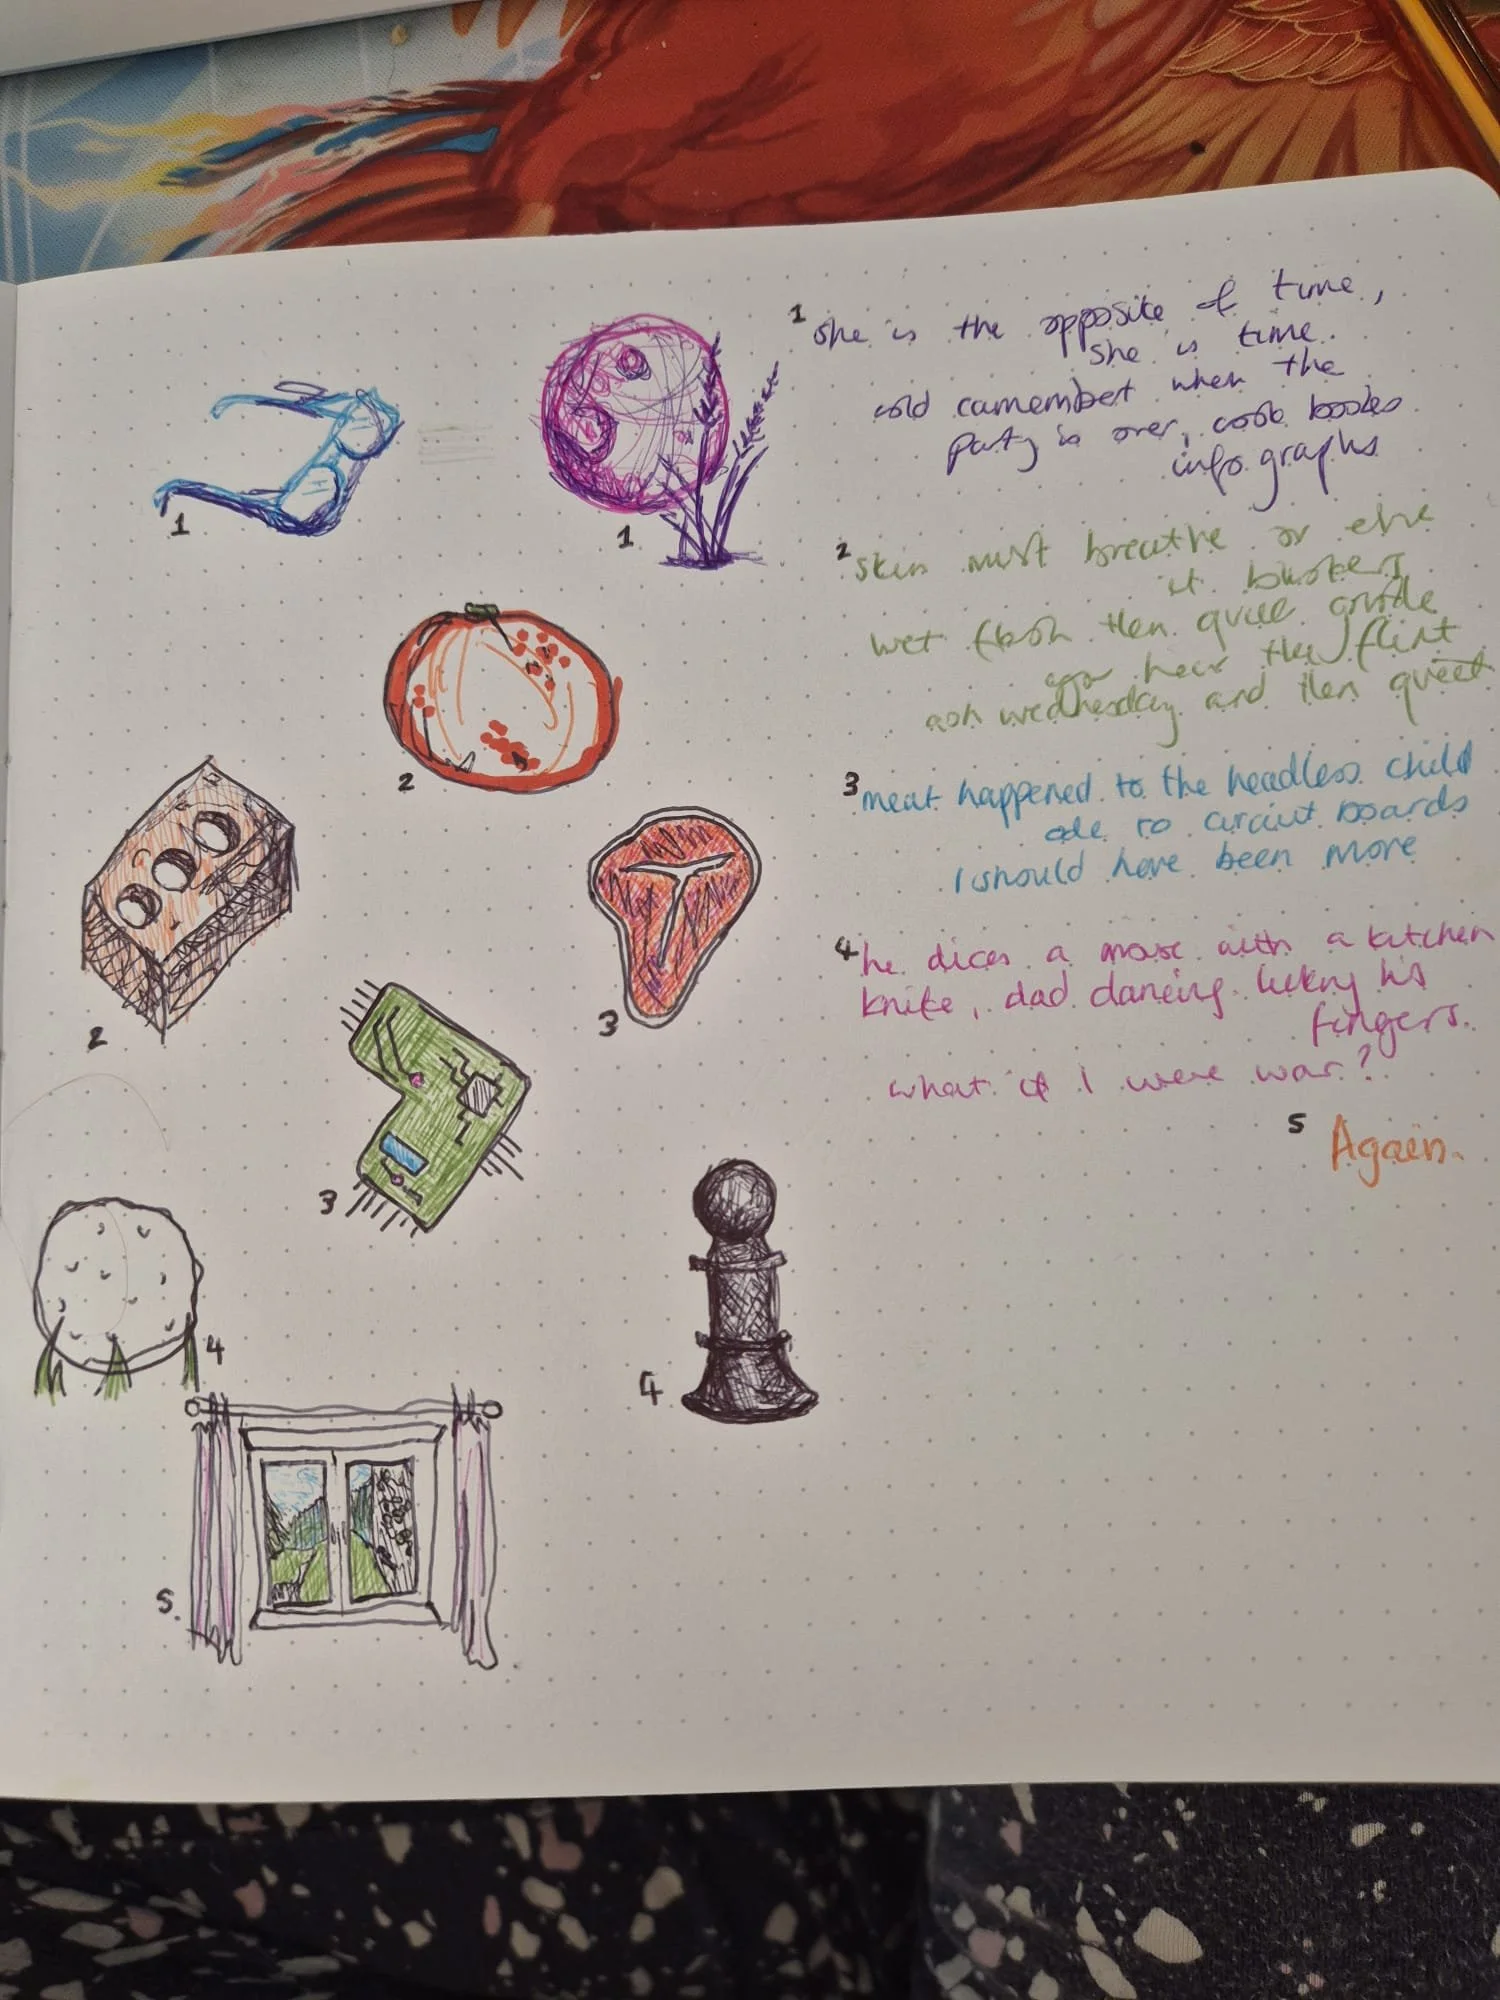 1 she is the opposite of time,
she is time.
cold camembert when the
party is over, cook books
info graphs
2 skin must breathe or else
it blisters
wet then quiet
hear the flint
ash wednesday and then quiet
3 meat happened to the headless child
ode to circuit boards
I should have been more
4 he dices a mouse with a kitchen
knife, dad dancing licking his
fingers.
what if I were war?
5 Again.
1
1
2
2
3
3
4
4
5.